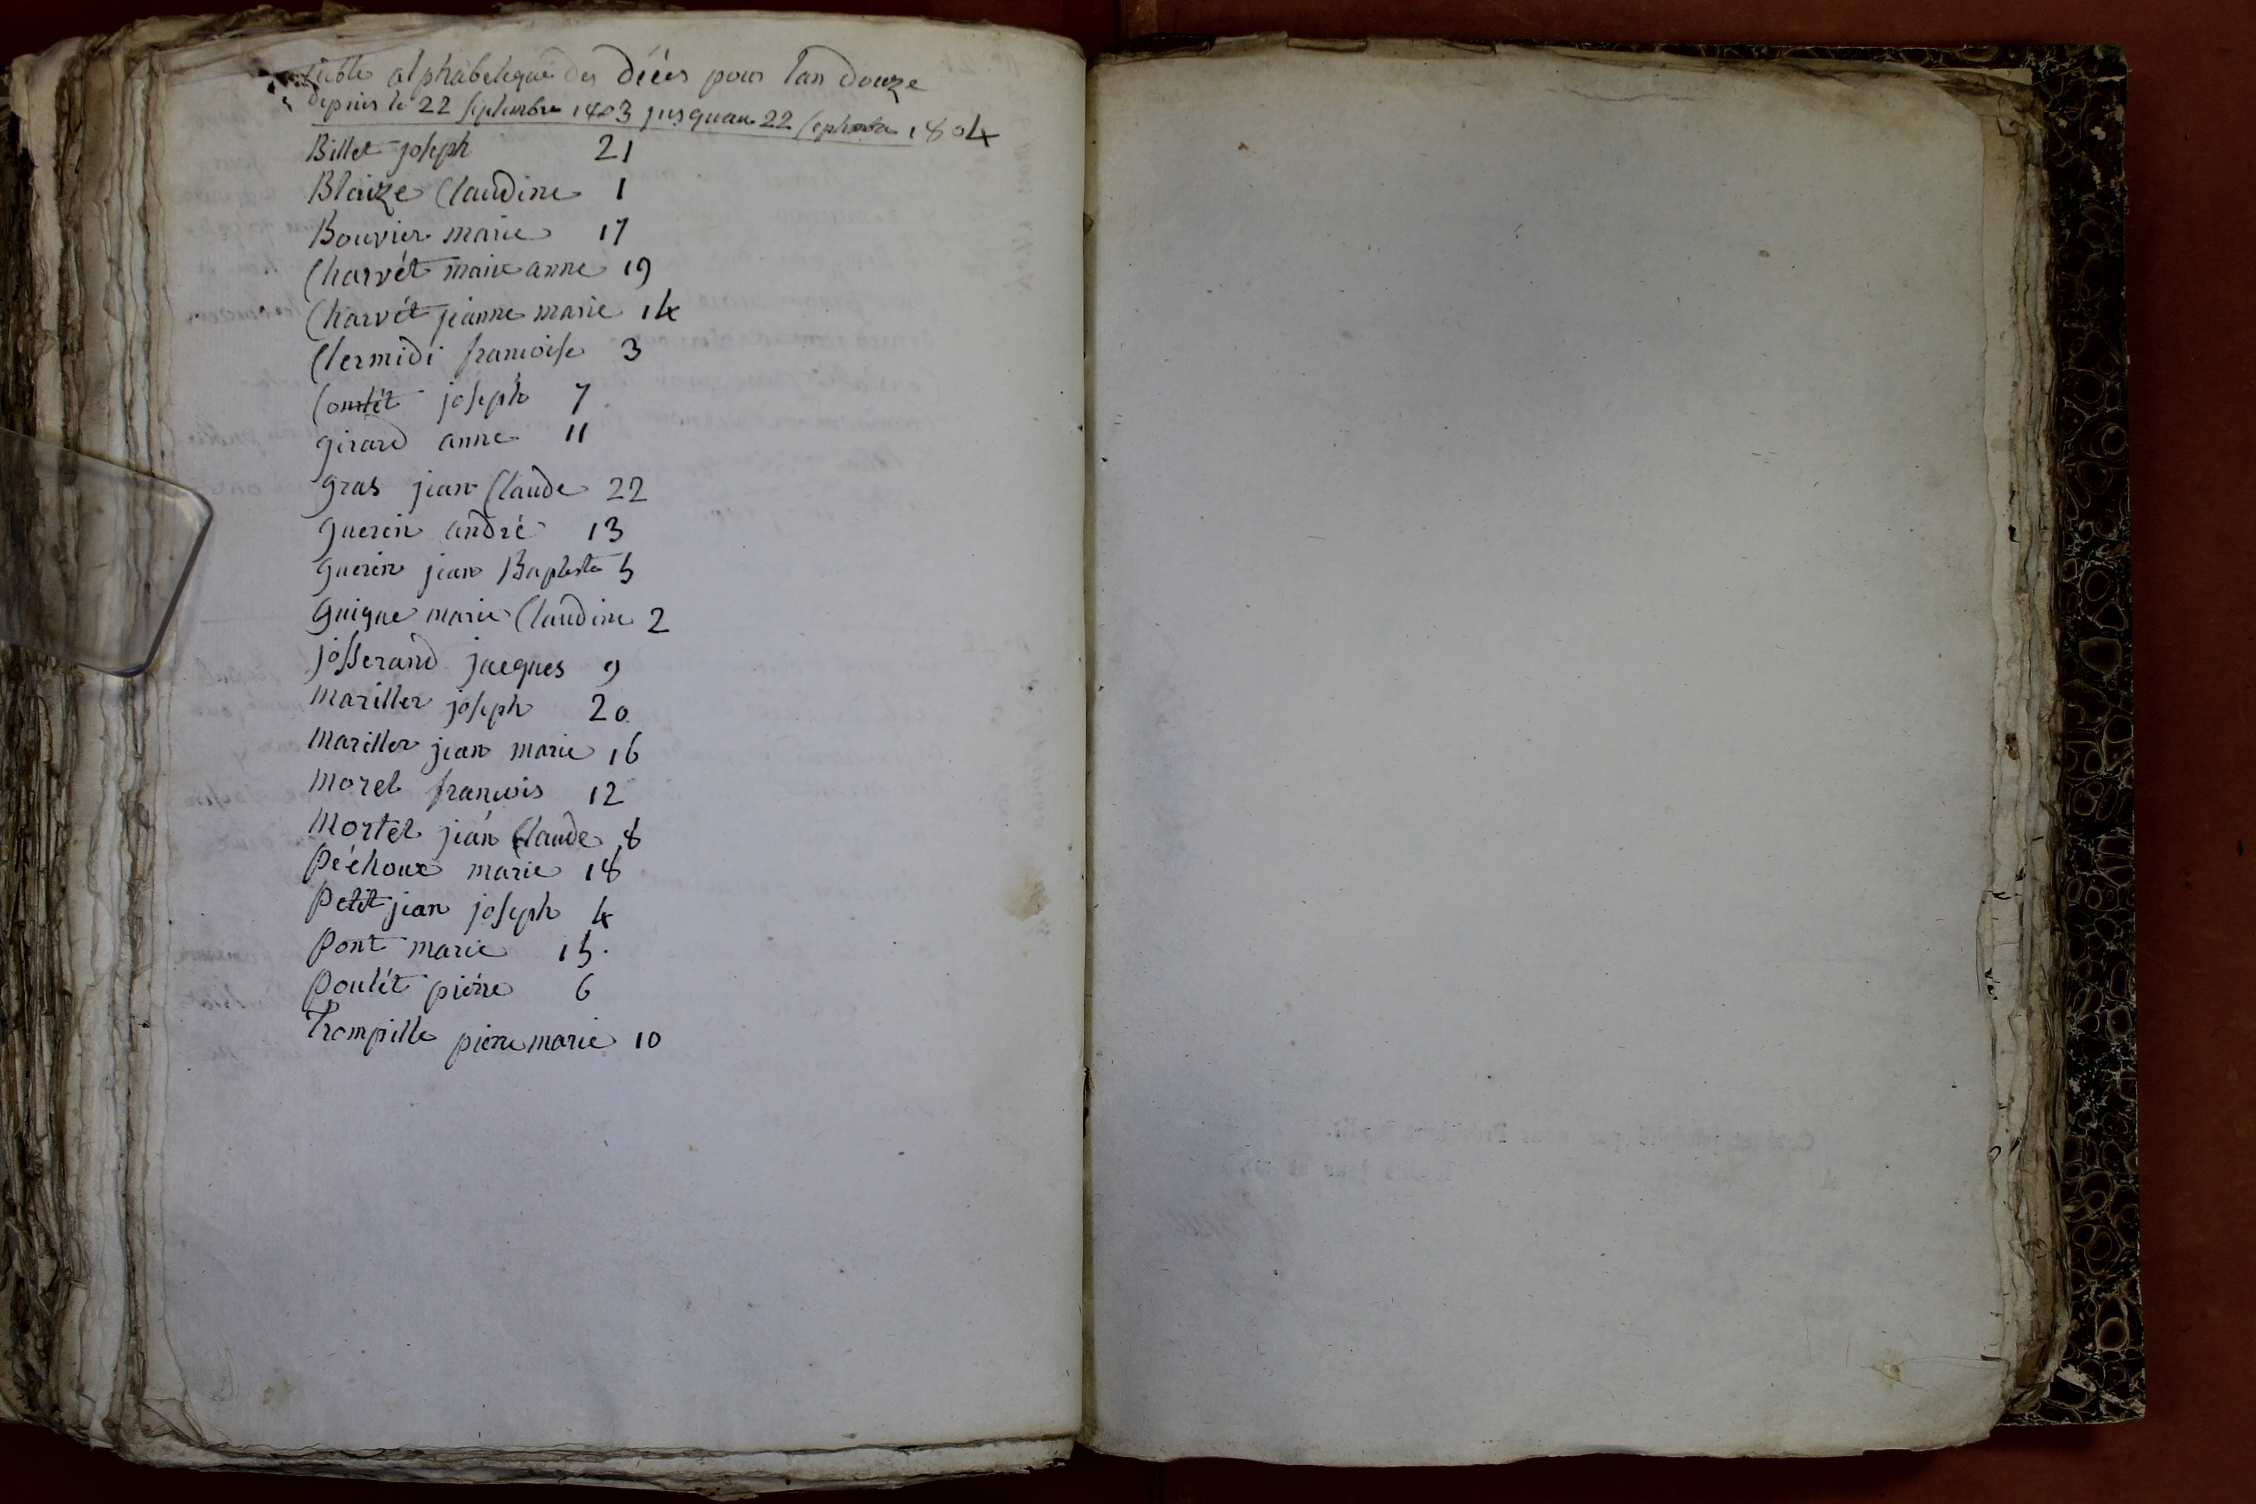 table alphabetique des décés pour lan douze
depuis le 22 septembre 1803 jusquau 22 septembre 1804
Billet joseph 21
Blaize Claudine 1
Bouvier marie 17
Charvét marie anne 19
Charvét jeanne marie 14
Clermidi francoise 3
Comtét joseph 7
girard anne 11
gras jean Claude 22
guerin andré 13
guerin jean Baptiste 5
guigue marie Claudine 2
josserand jacques 9
mariller joseph 20
mariller jean marie 16
morel francois 12
mortel jean Claude 8
péchoux marie 18
petit jean joseph 4
pont marie 15.
poulét piérre 6
Trompille pierre marie 10